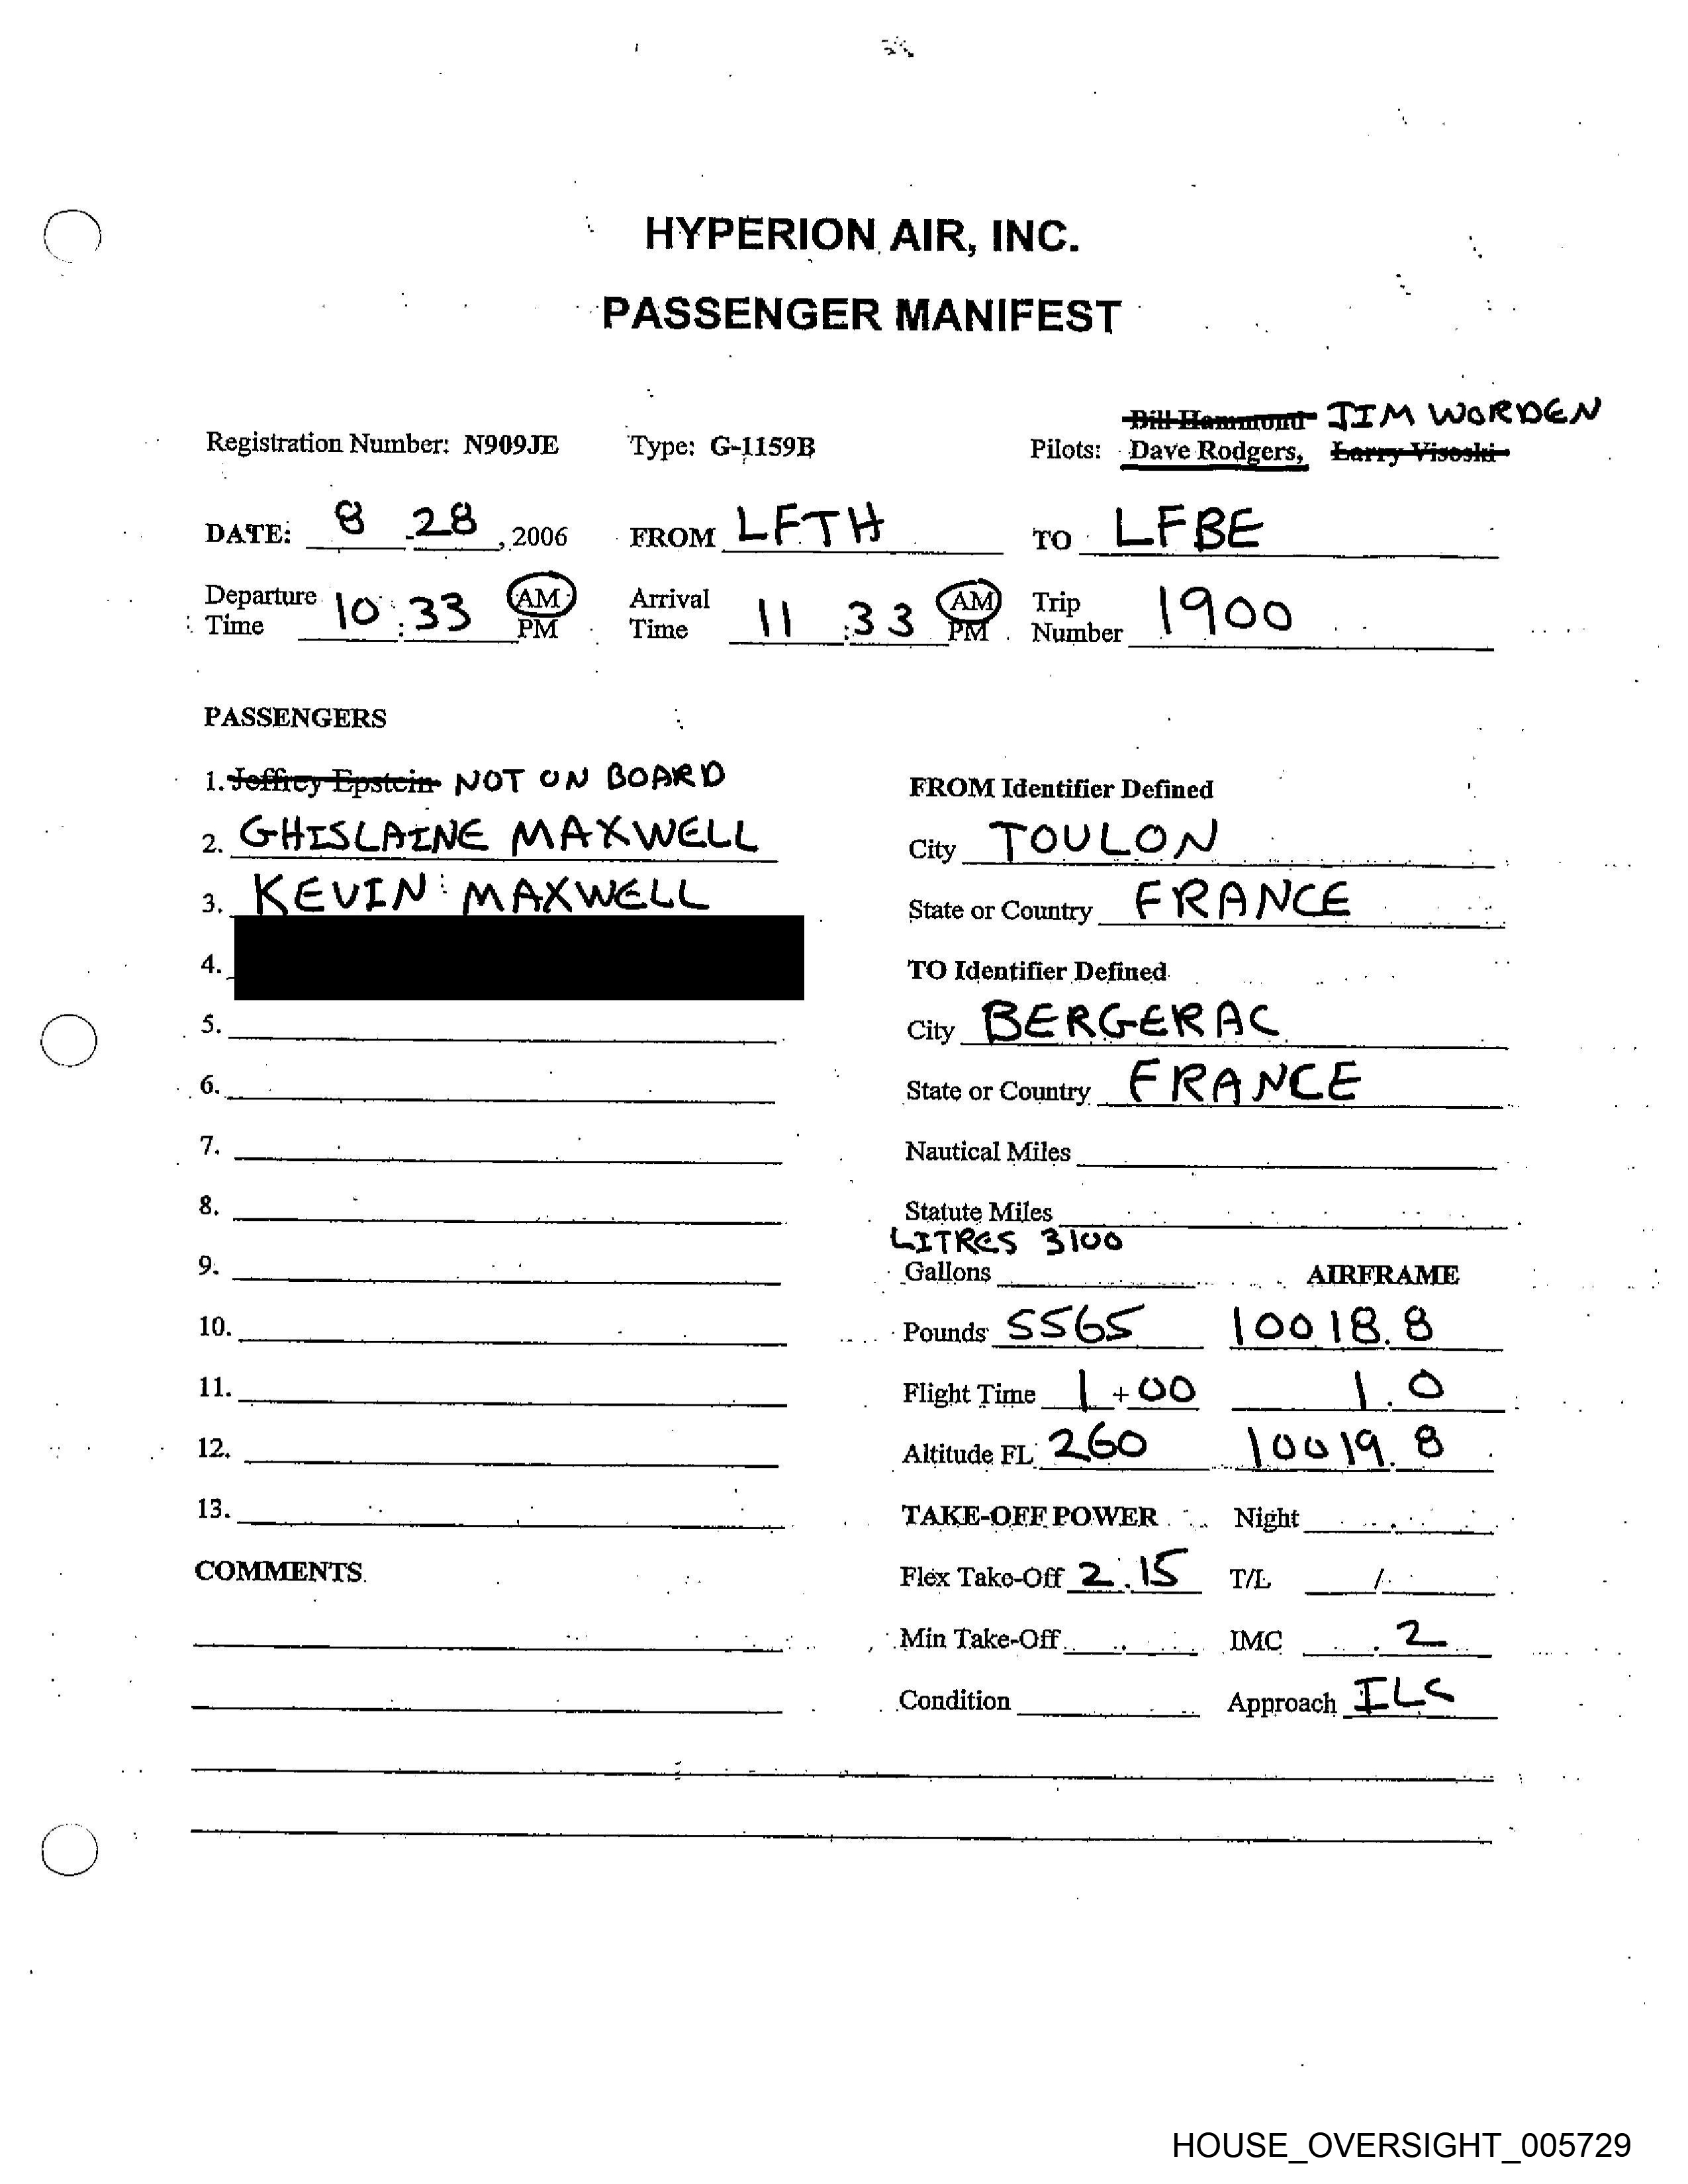 HYPERION AIR, INC.
PASSENGER MANIFEST
Bill Hammond JIM WORDEN
Registration Number: N909JE Type: G-1159B Pilots: Dave Rodgers, Larry Visoski
DATE: 8 28, 2006 FROM LFTH TO LFBE
Departure Time 10:33 AM PM Arrival Time 11:33 AM PM Trip Number 1900
PASSENGERS
1. Jeffrey Epstein NOT ON BOARD
2. GHISLAINE MAXWELL
3. KEVIN MAXWELL
4.
5.
6.
7.
8.
9.
10.
11.
12.
13.
COMMENTS
FROM Identifier Defined
City TOULON
State or Country FRANCE
TO Identifier Defined
City BERGERAC
State or Country FRANCE
Nautical Miles
Statute Miles
LITRES 3100
Gallons AIRFRAME
Pounds 5565 10018.8
Flight Time 1+00 1.0
Altitude FL 260 10019.8
TAKE-OFF POWER Night .
Flex Take-Off 2.15 T/L /
Min Take-Off IMC .2
Condition Approach ILS
HOUSE_OVERSIGHT_005729